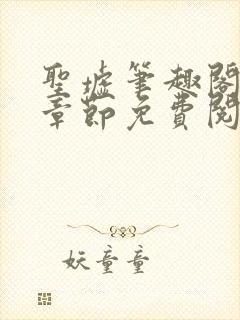 聖墟筆趣閣
章節免費閱
妖童童